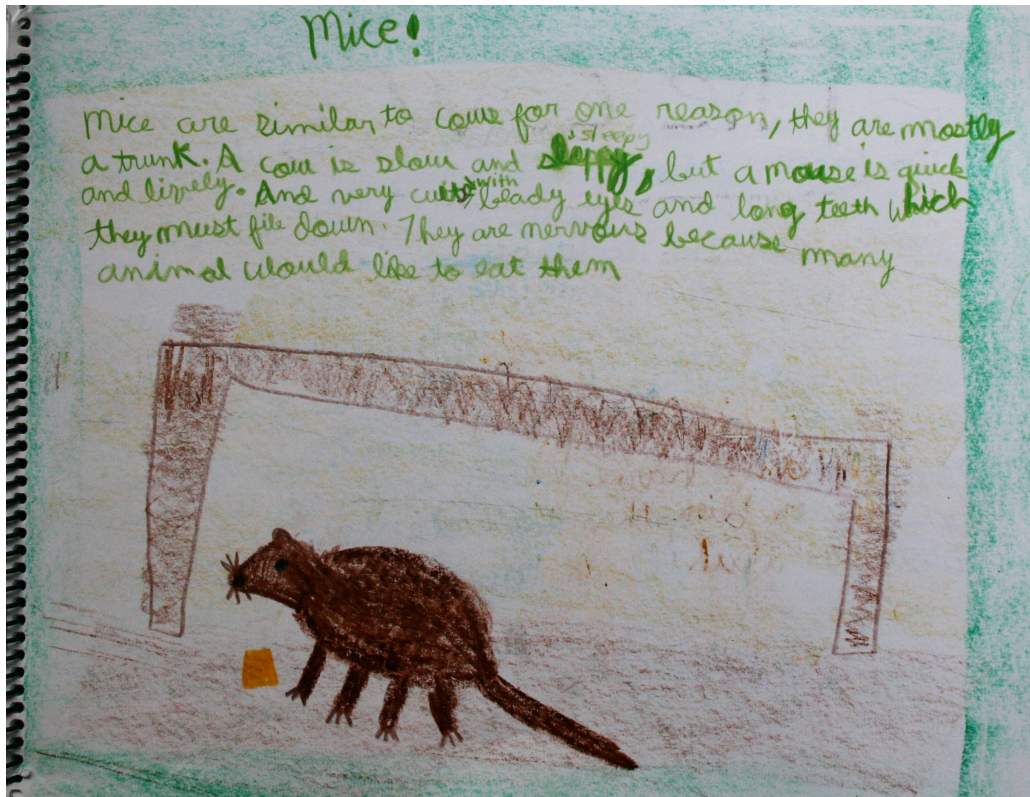 Mice!
Mice are similar to cows for one reason, they are mostly
a trunk. A cow is slow and sleepy, but a mouse is quick
and lively. And very cute, with beady eyes and long teeth which
they must file down. They are nervous because many
animal would like to eat them